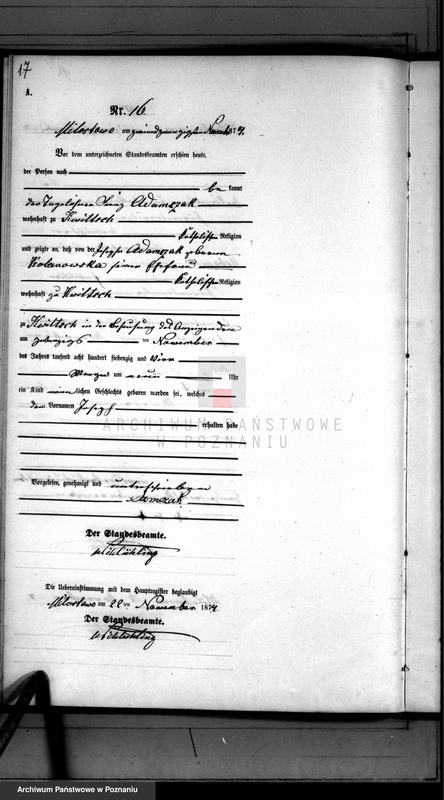 17
A.
Nr. 16
Milostowo am zweiundzwanzigsten November 1874.
Vor dem unterzeichneten Standesbeamten erschien heute,
der Person nach
be kannt
der Tagelöhner Adamczak
wohnhaft zu Kwiltsch
Katholischer Religion
und zeigte an, daß von der Josepha Adamczak geborenen
seiner Ehefrau
Katholischer Religion
wohnhaft zu Kwiltsch
zu Kwiltsch in der Behausung des Anzeigenden
am ten November
des Jahres tausend acht hundert siebenzig und vier
Morgens um neun Uhr
ein Kind männlichen Geschlechts geboren worden sei, welches
den Vornamen Joseph
erhalten habe
Vorgelesen, genehmigt und unterschrieben
Der Standesbeamte.
Die Uebereinstimmung mit dem Hauptregister beglaubigt
Milostowo am 22 ten November 1874
Der Standesbeamte.
ARCHIWUM PAŃSTWOWE
W POZNANIU
Archiwum Państwowe w Poznaniu